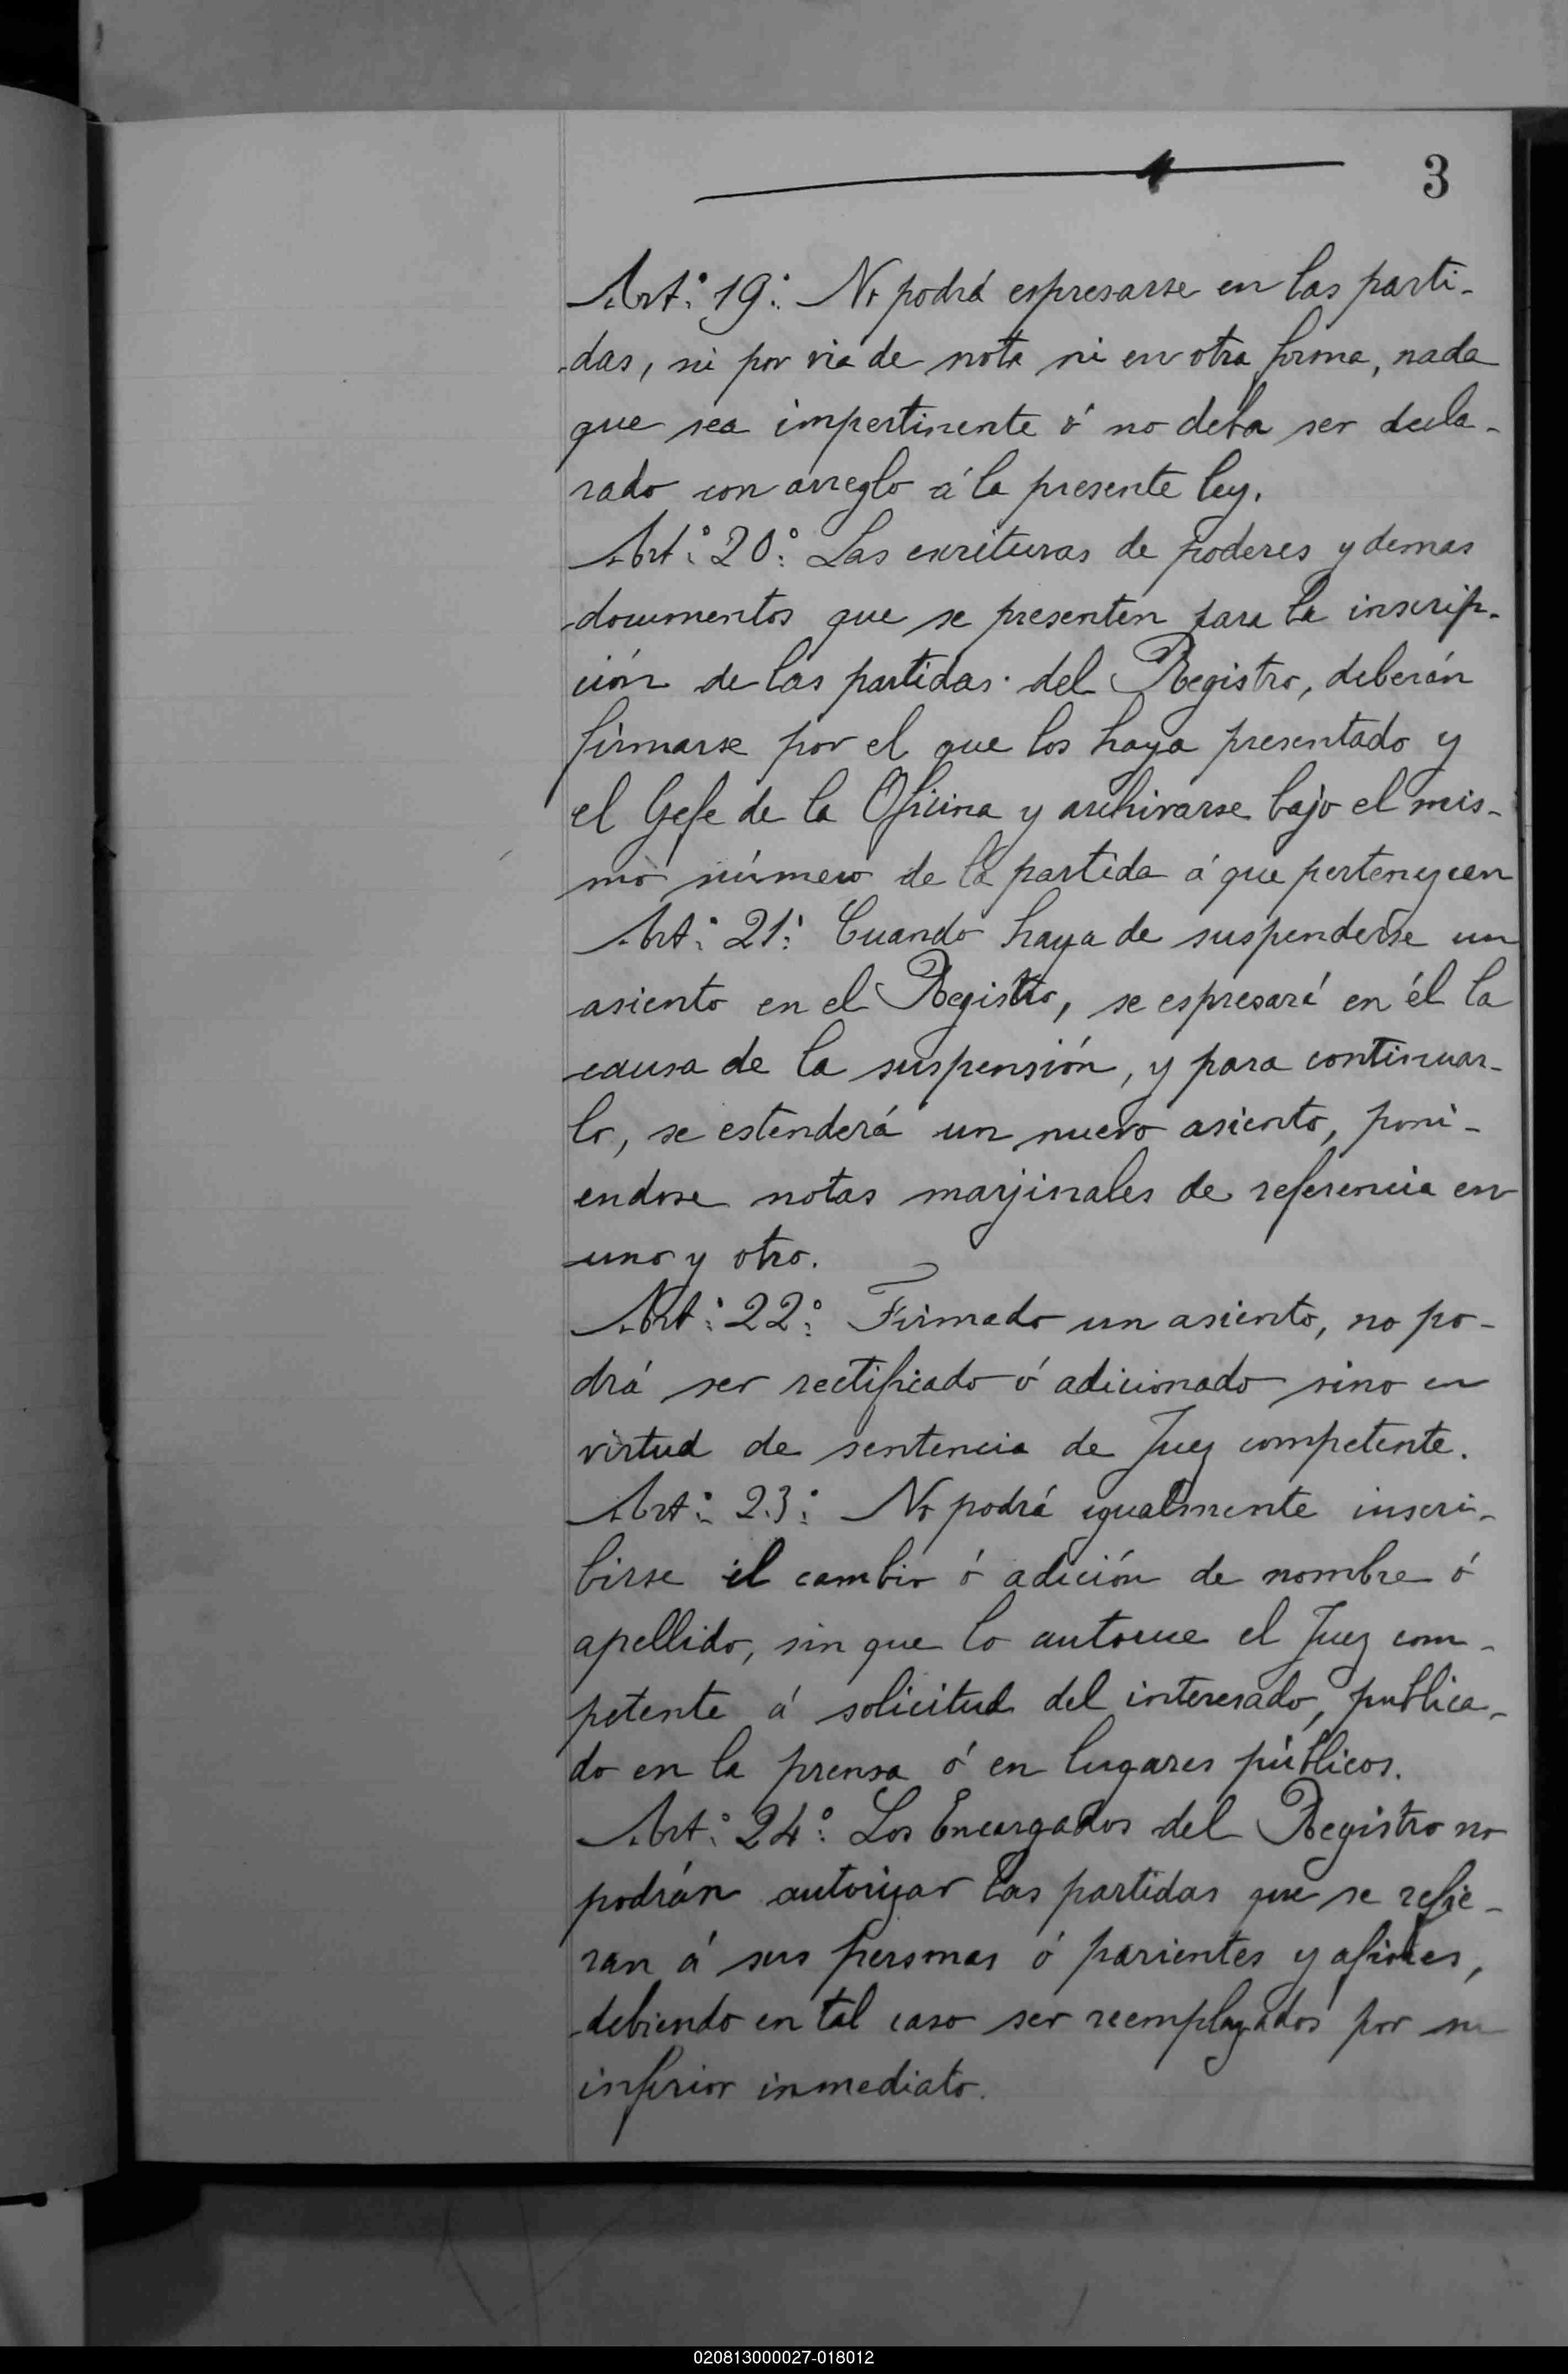 3
Art.º 19.º No podrá espresarse en las parti-
das, ni por via de nota ni en otra forma, nada
que sea impertinente ó no deba ser decla-
rado con arreglo á la presente ley.
Art.º 20.º Las escrituras de poderes y demas
documentos que se presenten para la inscrip-
ción de las partidas del Registro, deberán
firmarse por el que los haya presentado y
el Gefe de la Oficina y archivarse bajo el mis-
mo número de la partida á que pertenezcan
Art.º 21.º Cuando haya de suspenderse un
asiento en el Registro, se espresará en él la
causa de la suspensión, y para continuar-
lo, se estenderá un nuevo asiento, poni-
endose notas marjinales de referencia en
uno y otro.
Art.º 22.º Firmado un asiento, no po-
drá ser rectificado ó adicionado sino en
virtud de sentencia de Juez competente.
Art.º 23.º No podrá igualmente inscri-
birse el cambio ó adición de nombre ó
apellido, sin que lo autorice el Juez com-
petente á solicitud del interesado, publica-
do en la prensa ó en lugares públicos.
Art.º 24.º Los Encargados del Registro no
podrán autorizar las partidas que se refie-
ran á sus personas ó parientes y afines,
debiendo en tal caso ser reemplazados por su
inferior inmediato.
020813000027-018012